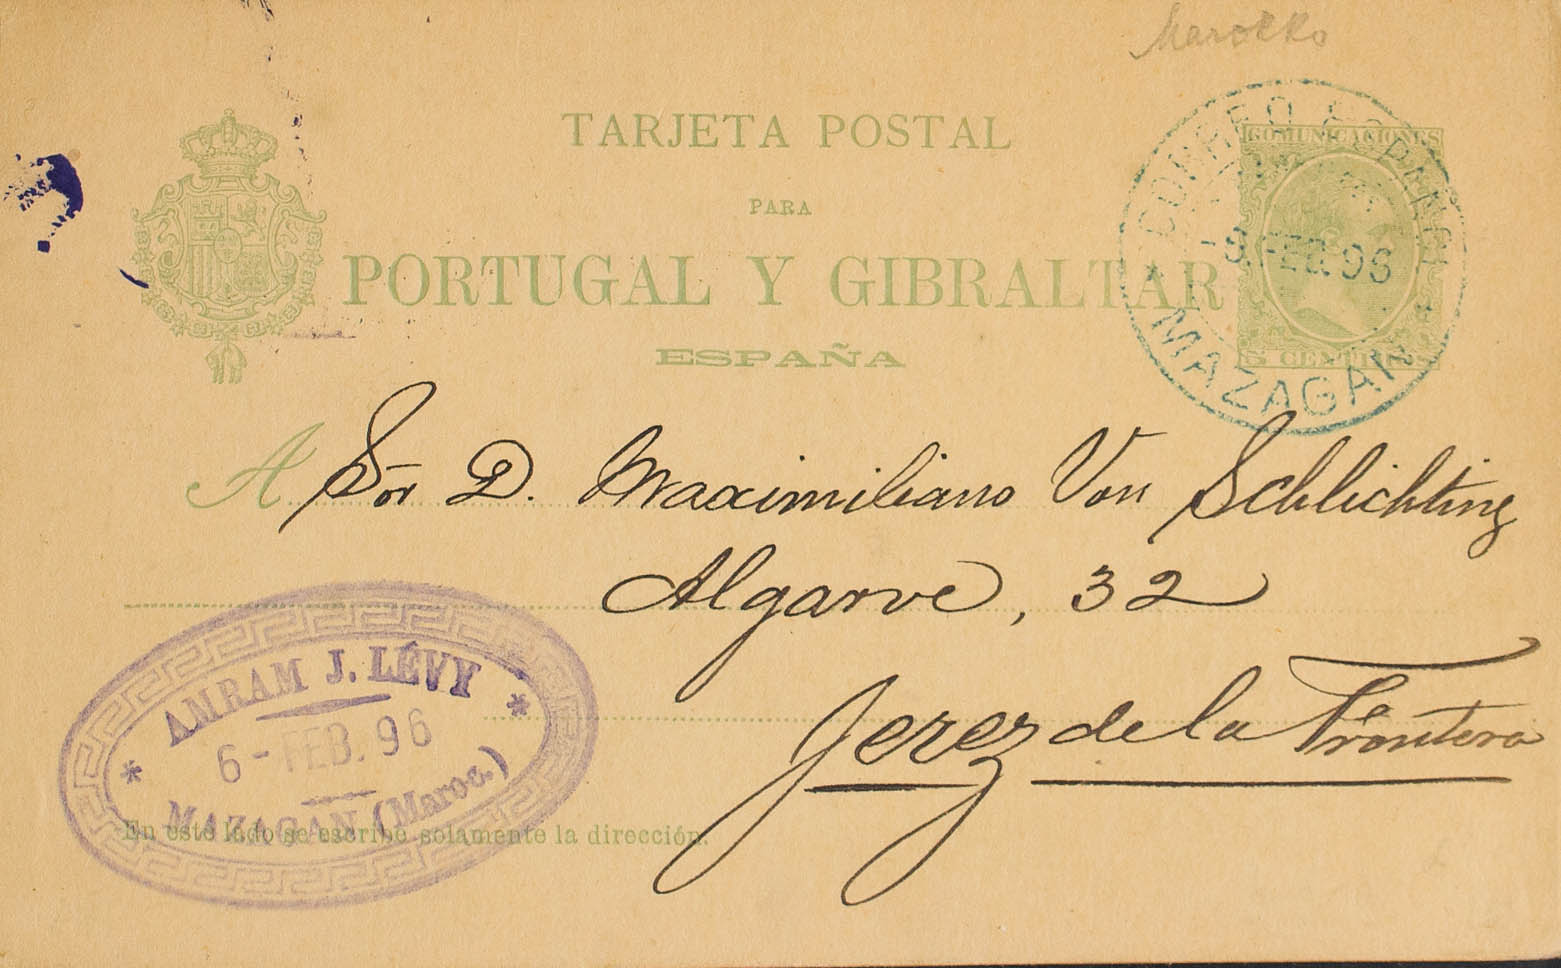 Marokko
TARJETA POSTAL
PARA
PORTUGAL Y GIBRALTAR
ESPAÑA
COMUNICACIONES
5 CENTIMOS
CORREO ESPAÑOL
FEB. 96
MAZAGAN
A Sor D. Maximiliano Von Schlichting
Algarve, 32
Jerez de la Frontera
AMRAM J. LÉVY
6 - FEB. 96
MAZAGAN (Maroc.)
En este lado se escribe solamente la dirección.